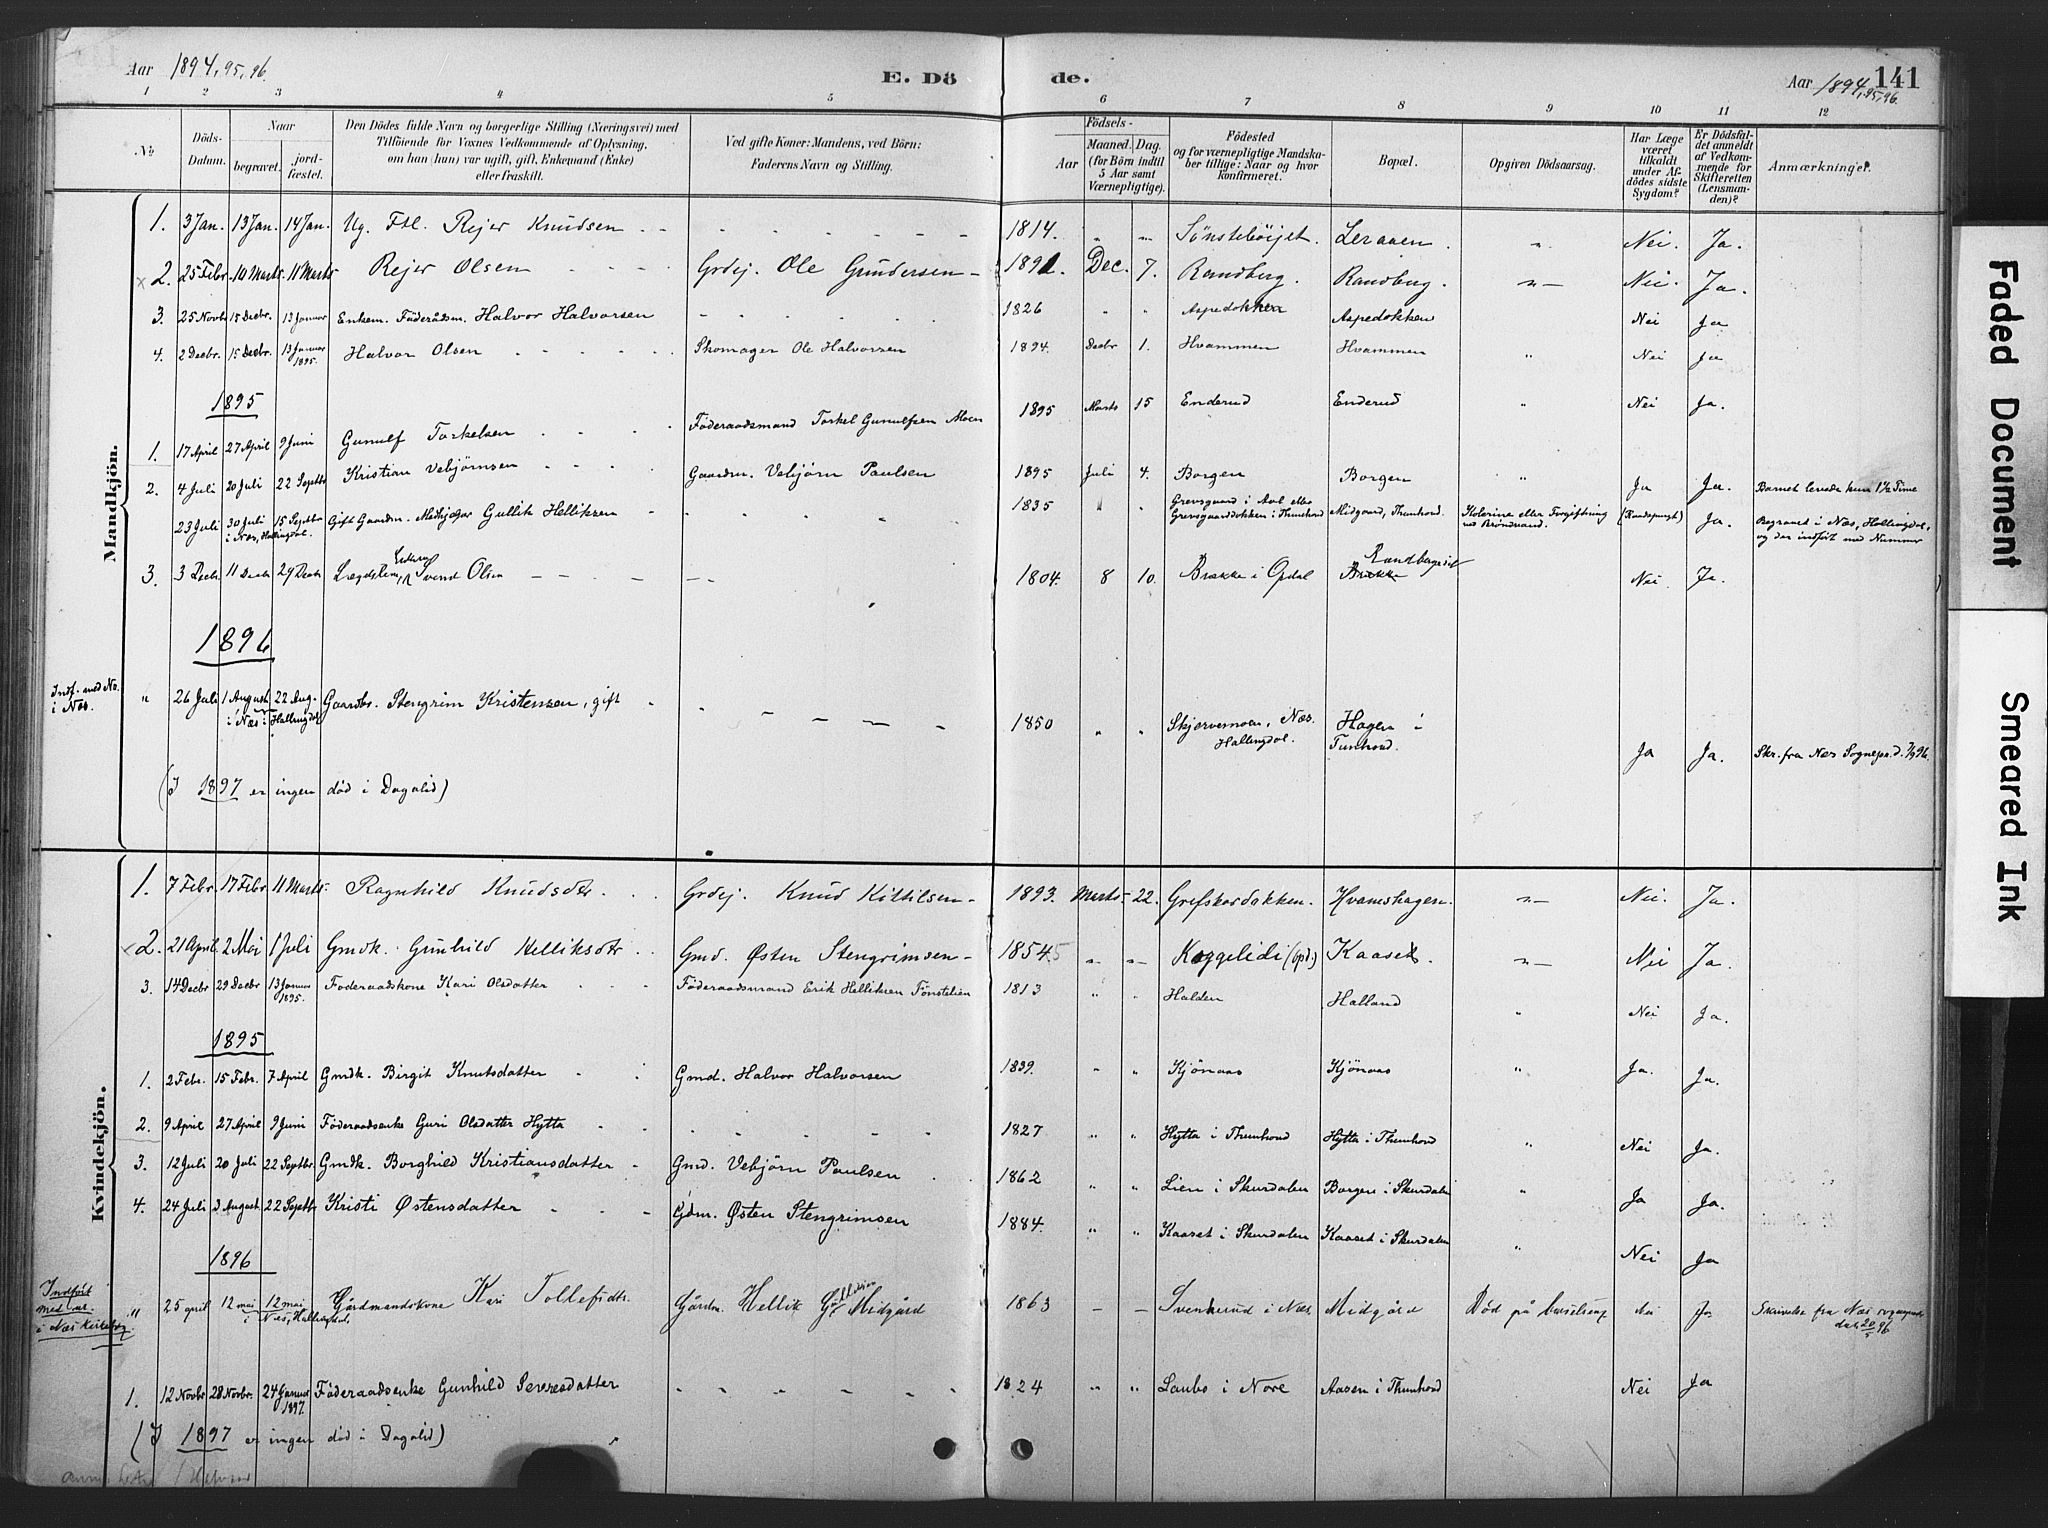 Aar 1894, 95, 96.
E. Dö
de.
Aar 1894, 95, 96.
141
1 2 3 4 5 6 7 8 9 10 11 12
No
Döds-Datum.
Naar
begravet.
jord-fæstet.
Den Dödes fulde Navn og borgerlige Stilling (Næringsvei) med
Tilföiende for Voxnes Vedkommende af Oplysning,
om han (hun) var ugift, gift, Enkemand (Enke)
eller fraskilt.
Ved gifte Koner: Mandens, ved Börn:
Faderens Navn og Stilling.
Födsels-
Aar
Maaned. Dag.
(for Börn indtil
5 Aar samt
Værnepligtige).
Födested
og for værnepligtige Mandska-
ber tillige: Naar og hvor
konfirmeret.
Bopæl.
Opgiven Dödsaarsag.
Har Læge
været
tilkaldt
under Af-
dödes sidste
Sygdom?
Er Dödsfal-
det anmeldt
af Vedkom-
mende for
Skifteretten
(Lensman-
den)?
Anmærkninger.
Mandkjön.
1. 3 Jan. 13 Jan. 14 Jan. Ug. Ftl. Rejer Knudsen 1814. Sønstebøijet. Leraaen. Nei. Ja.
2. 25 Febr 10 Marts 11 Marts Rejer Olsen Grdej. Ole Gundersen 1891. Dec. 7. Randberg. Randberg. Nei. Ja.
3. 25 Novbr 15 Decbr. 13 Januar Enkem. Föderådsm. Halvor Halvorsen 1826 Aspedokken Aspedokken Nei Ja
4. 2 Decbr. 15 Decbr. 13 Januar 1895. Halvor Olsen Skomager Ole Halvorsen 1894. Decbr 1. Hvammen Hvammen Nei Ja
1895
1. 17 April 27 April 9 Juni Gunulf Torkelsen Föderaadsmand Torkel Gunulfsen Moen 1895 Marts 15 Enderud Enderud Nei Ja.
2. 4 Juli 20 Juli 22 Septbr Kristian Vebjørnsen Gaardm. Vebjørn Paulsen 1895 Juli 4. Borgen Borgen Ja Ja. Barnet levede kun 1½ Time
23 Juli 30 Juli 15 Septbr i Næs, Hallingdal. Gift Gaardm. Gullik Helliksen 1835 Grevsgaard i Aal eller Grevsgaarddokken i Thunhovd Midgaard, Thunhovd. Kolerine eller Forgiftning ved Brøndvand. Ja. Begravet i Næs, Hallingdal, og der indført med Nummer
3. 3 Decbr 11 Decbr 29 Decbr Lægdslem, Enkem Svend Olsen 1804. 8 10. Brække i Opdal Brække Nei. Ja.
1896
Indf. med No. i Næs. " 26 Juli 1 August 22 Aug. i Næs i Hallingdal Gaardbr. Stengrim Kristensen, gift 1850 Skjervemoen, Næs. Hallingdal. Hagen i Tunhovd. Ja Ja. Skr. fra Næs Sognepr. d. 7/9 96.
(I 1897 er ingen död i Dagalid)
Kvindekjön.
1. 7 Febr 17 Febr 11 Marts Ragnhild Knudsdtr Grdej. Knud Kittilsen 1893. Marts 22. Grefskordakken. Hvamshagen. Nei. Ja.
2. 21 April. 2 Mai 1 Juli Gmdk. Gunhild Helliksdtr Gmd. Østen Stengrimsen 1854 5 Koggelidi (Opd.) Kaaset. Nei Ja.
3. 14 Decbr 29 Decbr 13 Januar 1895. Föderaadskone Kari Olsdatter Föderaadsmand Erik Helliksen Tönstelien 1813 Halden Halland Nei Ja.
1895
1. 2 Febr. 15 Febr. 7 April Gmdk. Birgit Knutsdatter Gmd. Halvor Halvorsen 1839. Kjönaas Kjönaas Ja. Ja.
2. 9 April 27 April 9 Juni Föderaadsenke Guri Olsdatter Hytta 1827 Hytta i Thunhovd Hytta i Thunhovd Nei Ja.
3. 12 Juli 20 Juli 22 Septbr. Gmdk. Borghild Kristiansdatter Gmd. Vebjörn Paulsen 1862 Lien i Skurdalen Borgen i Skurdalen Ja Ja.
4. 24 Juli 3 August 22 Septbr Kristi Østensdatter Gdm. Østen Stengrimsen 1884. Kaaset i Skurdalen Kaaset i Skurdalen Nei Ja
1896
Indført med nr. i Næs kirkebog " 25 april 12 mai 12 mai i Næs, Hallingdal, Gårdmandskone Kari Tollefsdtr. Gårdm. Hellik Midgård 1863 Svenkerud i Næs. Midgård Død på barselseng Nei Ja. Skrivelse fra Næs sogneprest dat. 20/5 96
1. 12 Novbr 28 Novbr. 24 Januar 1897. Föderaadsenke Gunhild Severesdatter 1824 Laubs i Nore Aasen i Thunhovd Nei Ja
(I 1897 er ingen død i Dagalid)
Faded Document
Smeared Ink